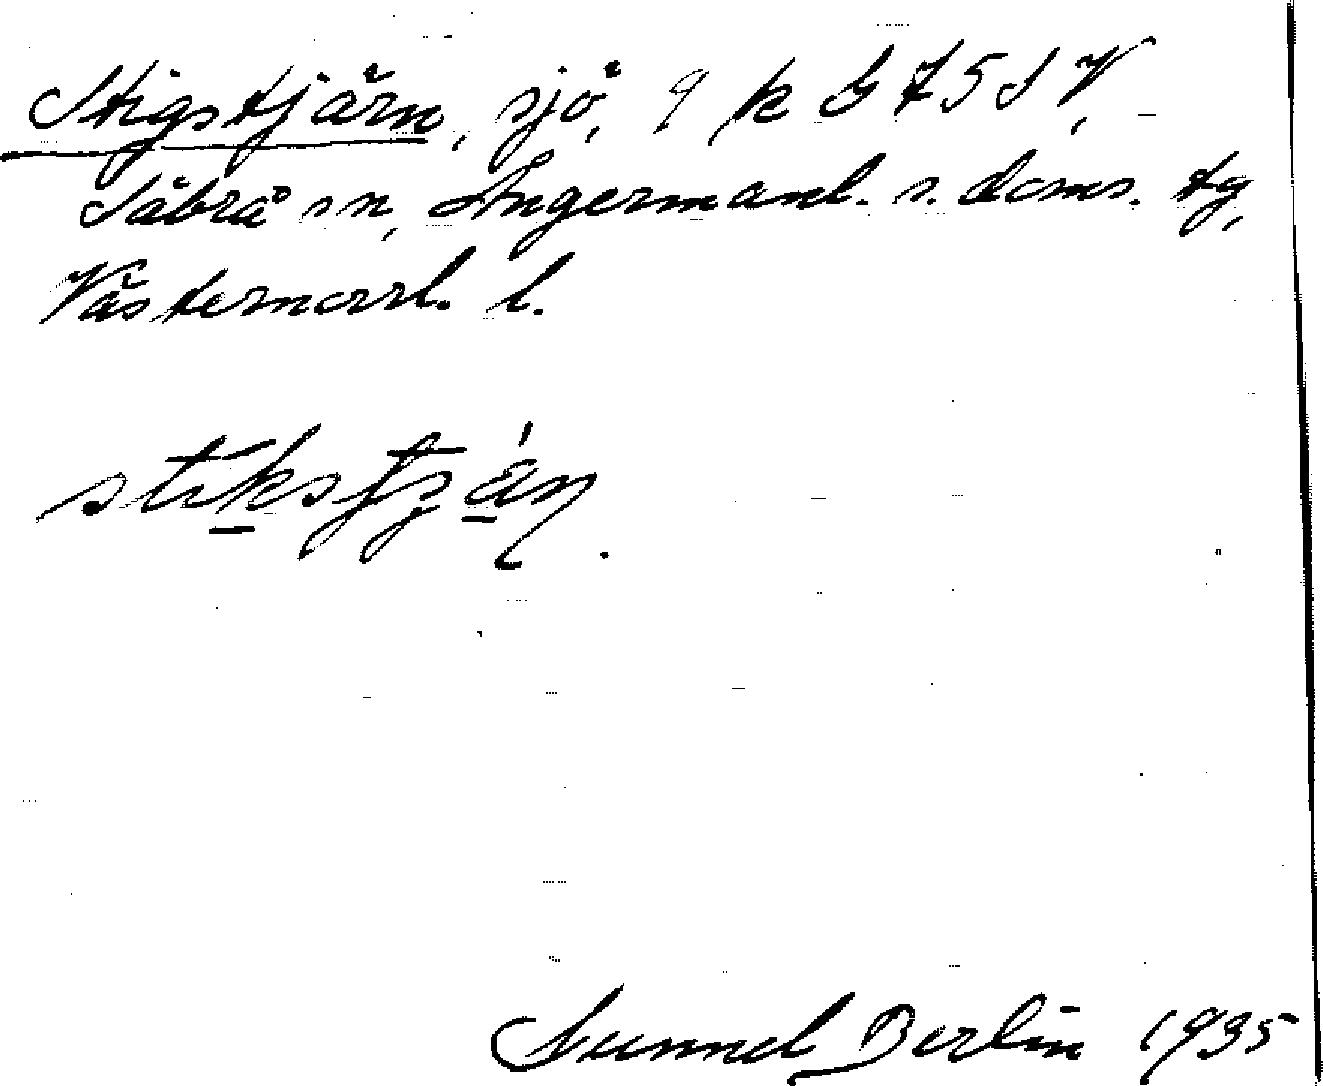 Stigstjärn, sjö, 9 k G 75 SV,
Säbrå sn, Ångermanl. s. doms. tg,
Västernorrl. l.
Gunnel Berlin 1935